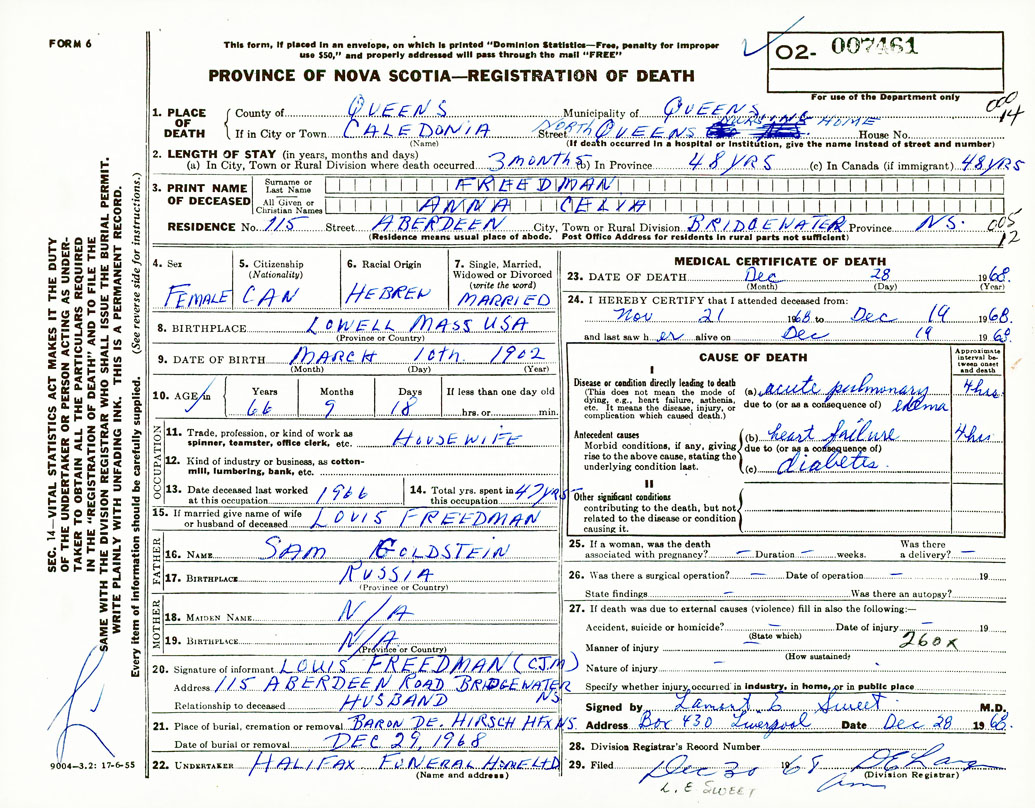 FORM 6
This form, if placed in an envelope, on which is printed "Dominion Statistics—Free, penalty for improper
use $50," and properly addressed will pass through the mail "FREE"
02- 007461
PROVINCE OF NOVA SCOTIA—REGISTRATION OF DEATH
For use of the Department only
000
14
1. PLACE OF DEATH
County of QUEENS Municipality of QUEENS
If in City or Town CALEDONIA Street NORTH QUEENS NURSING HOME House No.
(Name) (If death occurred in a hospital or institution, give the name instead of street and number)
2. LENGTH OF STAY (in years, months and days)
(a) In City, Town or Rural Division where death occurred 3 MONTHS (b) In Province 48 YRS (c) In Canada (if immigrant) 48 YRS
3. PRINT NAME OF DECEASED
Surname or Last Name FREEDMAN
All Given or Christian Names ANNA CELIA
RESIDENCE No. 115 Street ABERDEEN City, Town or Rural Division BRIDGEWATER Province N.S.
005
12
(Residence means usual place of abode. Post Office Address for residents in rural parts not sufficient)
4. Sex FEMALE
5. Citizenship (Nationality) CAN
6. Racial Origin HEBREW
7. Single, Married, Widowed or Divorced (write the word) MARRIED
8. BIRTHPLACE LOWELL MASS USA
(Province or Country)
9. DATE OF BIRTH MARCH 10th 1902
(Month) (Day) (Year)
10. AGE in Years 66 Months 9 Days 18 If less than one day old hrs. or min.
OCCUPATION
11. Trade, profession, or kind of work as spinner, teamster, office clerk, etc. HOUSEWIFE
12. Kind of industry or business, as cotton-mill, lumbering, bank, etc.
13. Date deceased last worked at this occupation 1966
14. Total yrs. spent in this occupation 47 YRS
15. If married give name of wife or husband of deceased LOUIS FREEDMAN
FATHER
16. NAME SAM GOLDSTEIN
17. BIRTHPLACE RUSSIA
(Province or Country)
MOTHER
18. MAIDEN NAME N/A
19. BIRTHPLACE N/A
(Province or Country)
20. Signature of informant LOUIS FREEDMAN (CJM)
Address 115 ABERDEEN ROAD BRIDGEWATER NS
Relationship to deceased HUSBAND
21. Place of burial, cremation or removal BARON DE. HIRSCH HFX NS.
Date of burial or removal DEC 29, 1968
22. UNDERTAKER HALIFAX FUNERAL HOME LTD
(Name and address)
MEDICAL CERTIFICATE OF DEATH
23. DATE OF DEATH Dec 28 1968.
(Month) (Day) (Year)
24. I HEREBY CERTIFY that I attended deceased from:
Nov 21 1968 to Dec 19 1968.
and last saw her alive on Dec 19 1968.
CAUSE OF DEATH
Approximate interval between onset and death
I
Disease or condition directly leading to death
(This does not mean the mode of dying, e.g., heart failure, asthenia, etc. It means the disease, injury, or complication which caused death.)
(a) acute pulmonary edema 4 hrs
due to (or as a consequence of)
Antecedent causes
Morbid conditions, if any, giving rise to the above cause, stating the underlying condition last.
(b) heart failure 4 hrs
due to (or as a consequence of)
(c) diabetes.
II
Other significant conditions
contributing to the death, but not related to the disease or condition causing it.
25. If a woman, was the death associated with pregnancy? — Duration — weeks. Was there a delivery? —
26. Was there a surgical operation? — Date of operation — 19
State findings — Was there an autopsy?
27. If death was due to external causes (violence) fill in also the following:—
Accident, suicide or homicide? — Date of injury — 19
(State which)
Manner of injury — 260X
(How sustained)
Nature of injury —
Specify whether injury occurred in industry, in home, or in public place
Signed by Lamert E Sweet M.D.
Address Box 430 Liverpool Date Dec 28 1968.
28. Division Registrar's Record Number
29. Filed Dec 30 1968
(Division Registrar)
L. E SWEET
SEC. 14—VITAL STATISTICS ACT MAKES IT THE DUTY
OF THE UNDERTAKER OR PERSON ACTING AS UNDER-
TAKER TO OBTAIN ALL THE PARTICULARS REQUIRED
IN THE "REGISTRATION OF DEATH" AND TO FILE THE
SAME WITH THE DIVISION REGISTRAR WHO SHALL ISSUE THE BURIAL PERMIT.
WRITE PLAINLY WITH UNFADING INK. THIS IS A PERMANENT RECORD.
Every item of information should be carefully supplied. (See reverse side for instructions.)
9004—3.2: 17-6-55